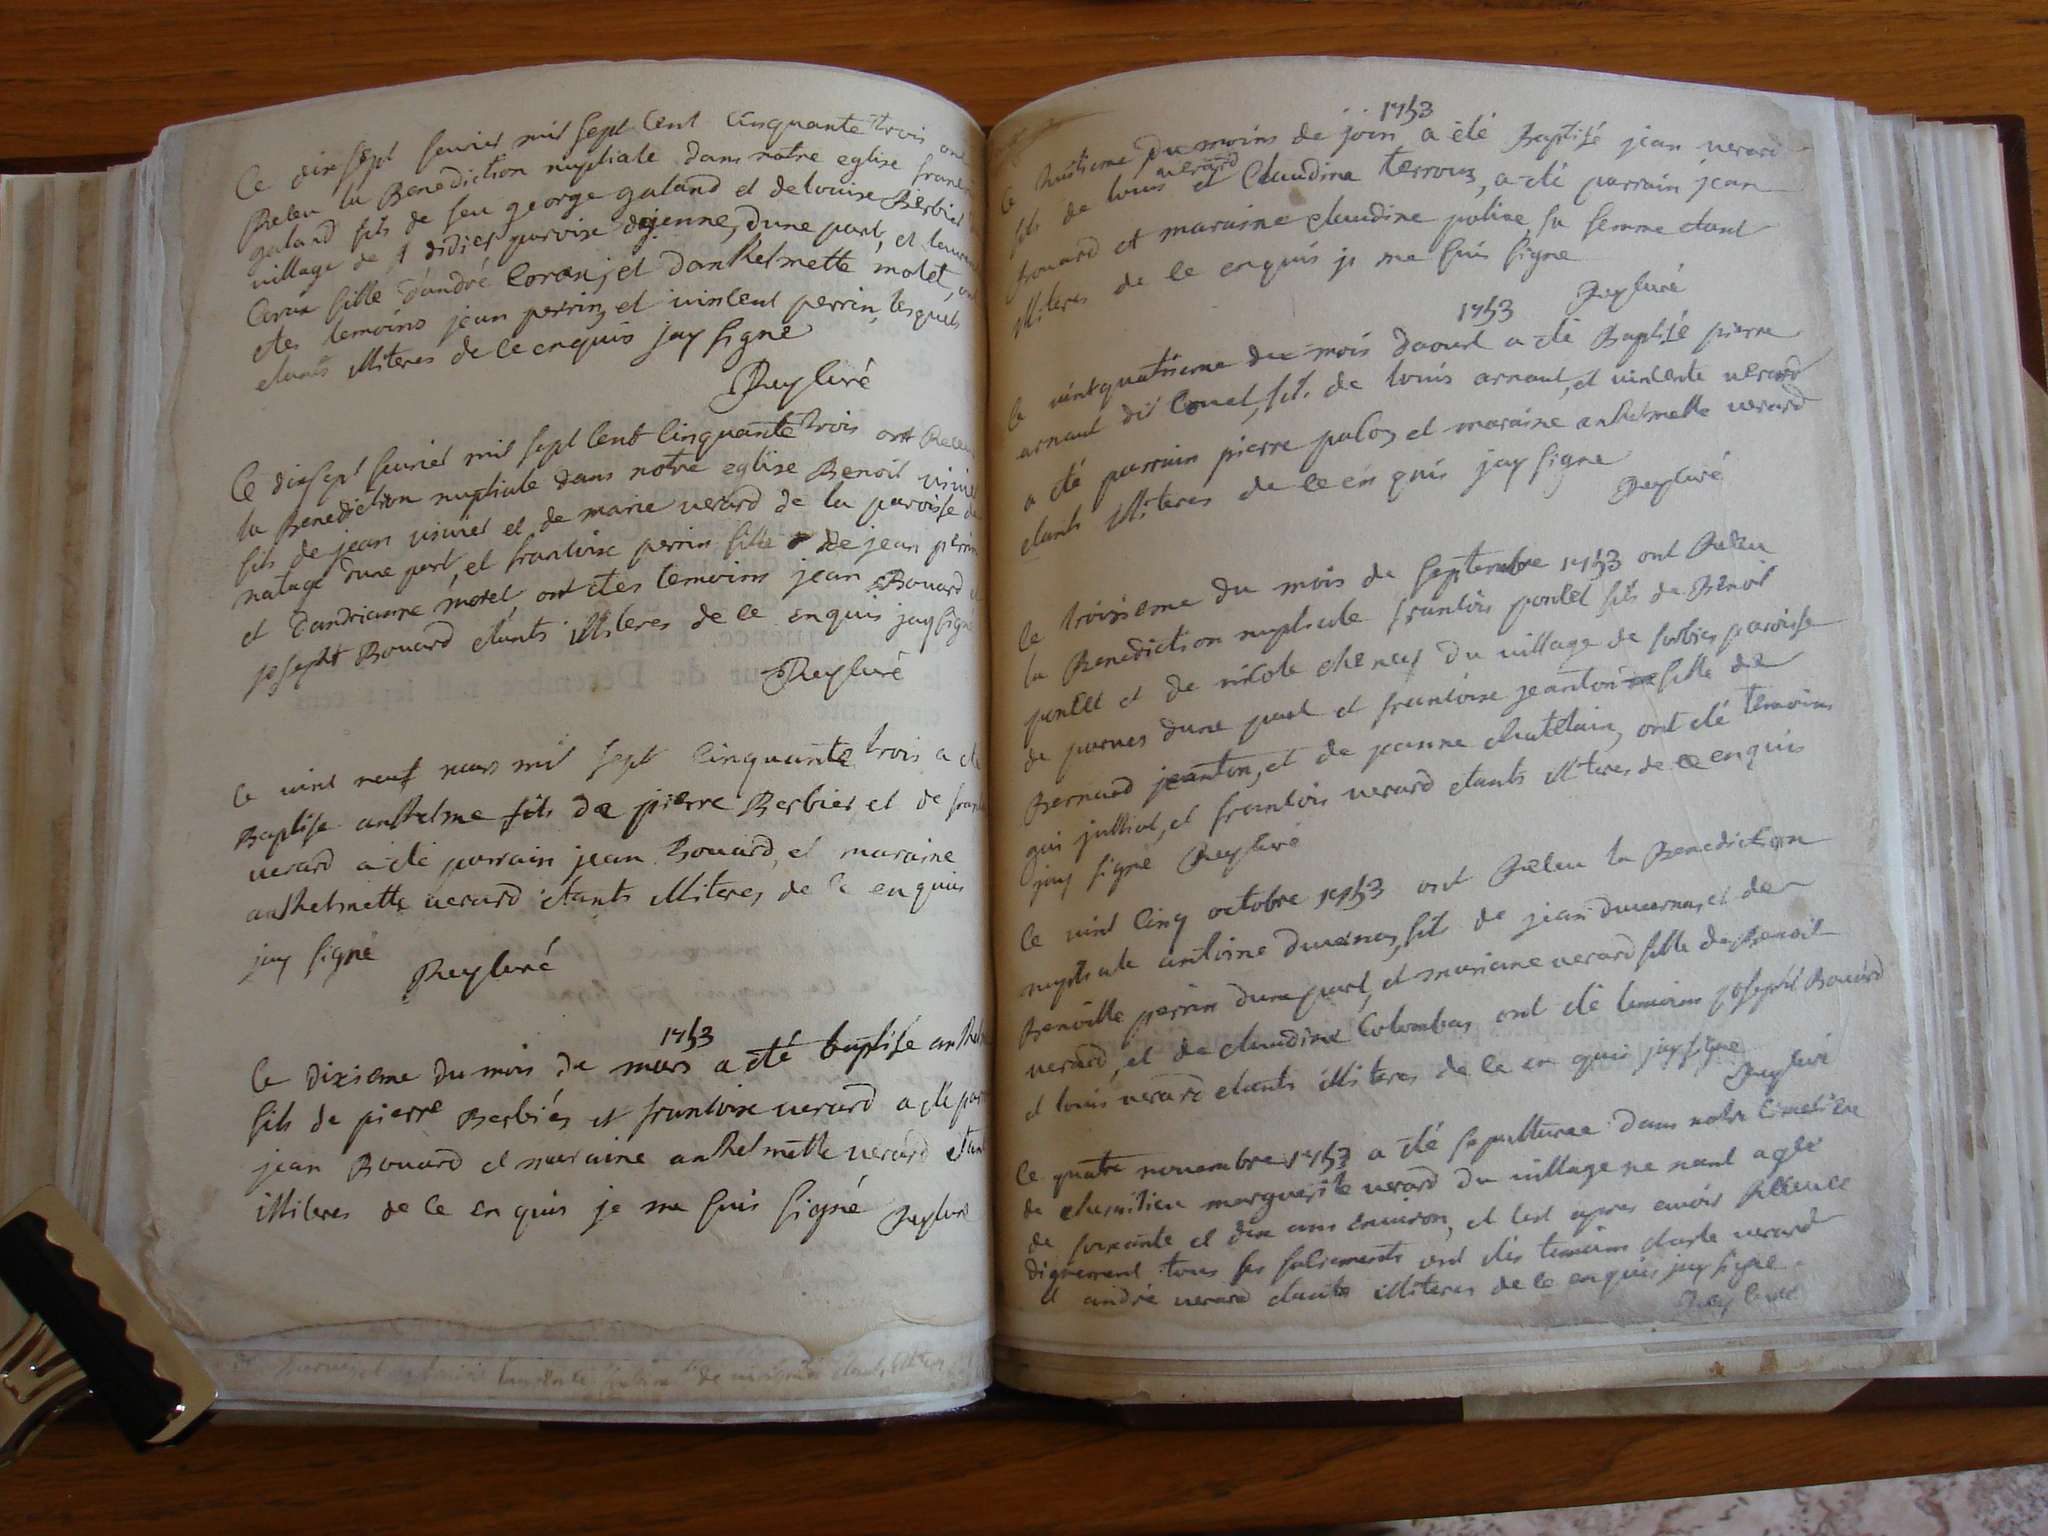 Ce dixsept feuvrier mil sept cent cinquante trois ont
Receu la Benediction nuptiale dans notre eglise
galand fils de feu george galand et de louise Berbier
village de st didier paroise dejenne, dune part, et
Coraz fille d'andré Coraz, et danthelmette molet, ont
etes temoins jean perrin, et vincent perrin, lesquels
etants illiteres de ce enquis jay signé
Rey curé
Ce dixsept feuvrier mil sept cent cinquante trois ont Receu
la Benediction nuptiale dans notre eglise Benoit
fils de jean et de marie verard de la paroisse de
natage dune part, et francoise perrin fille de jean perrin
et dandrianne morel, ont etes temoins jean Bouard et
joseph Bouard etants illiteres de ce enquis jay signé
Rey curé
Ce vint neuf mars mil sept cinquante trois a eté
Baptise anthelme fils de pierre Berbier, et de
verard a eté parrain jean Bouard, et maraine
anthelmette verard etants illiteres, de ce enquis
jay signé
Rey curé
1753
Ce dixieme du mois de mars a eté baptisé
fils de pierre Berbiér et francoise verard a eté
jean Bouard et maraine anthelmette verard etant
illiteres de ce enquis je me suis signé Rey curé
1753
Ce huitieme du moins de join a eté Baptisé jean verard
verard
fils de louis et Claudine terroux, a eté parrain jean
bouard et maraine claudine poline, sa femme etant
illiteres de ce enquis je me suis signe
Rey curé
1753
Ce vintquatrieme du mois daoust a eté Baptisé pierre
arnaut dit Cornet, fils de louis arnaut, et vincente verard
a eté parrain pierre palon, et maraine anthelmette verard
etants illiteres de ce enquis jay signe
Rey curé
Ce troisieme du mois de septembre 1753 ont Receu
la Benediction nuptiale francois pontet fils de Benoit
pontet et de nicole du village de sorbier paroisse
de parves dune part et francoise jeanton fille de
Bernard jeanton, et de jeanne chatelain, ont eté temoins
gui julliat, et francois verard etants illiteres de ce enquis
jay signe Rey curé
Ce vint cinq octobre 1753 ont Receu la Benediction
nuptiale antoine duvernay, fils de jean duvernay, et de
Benoitte perrin dune part, et mariane verard fille de Benoit
verard, et de claudine Colombay, ont eté temoins joseph Bouard
et louis verard etants illiteres de ce en quis jay signe
Rey curé
Ce quatre nouembre 1753 a eté sepulturee dans notre Cimetiere
de marguerite verard du village ne nant agée
de soixante et dix ans environ, et cest apres avoir Receuee
dignement tous ses sacrements ont etés temoins verard
et andré verard etants illiteres de ce enquis jay signe
Rey curé